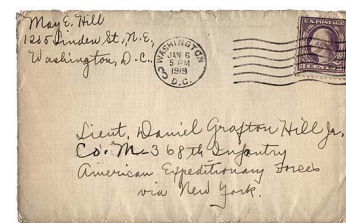 May E. Hill
1225 Linden St., N.E.,
Washington, D.C.
WASHINGTON
JAN. 6
5 PM
1919
D.C.
U.S. POSTAGE
Lieut. Daniel Grafton Hill Jr.
Co. M-368th Infantry
American Expeditionary Forces
via New York.